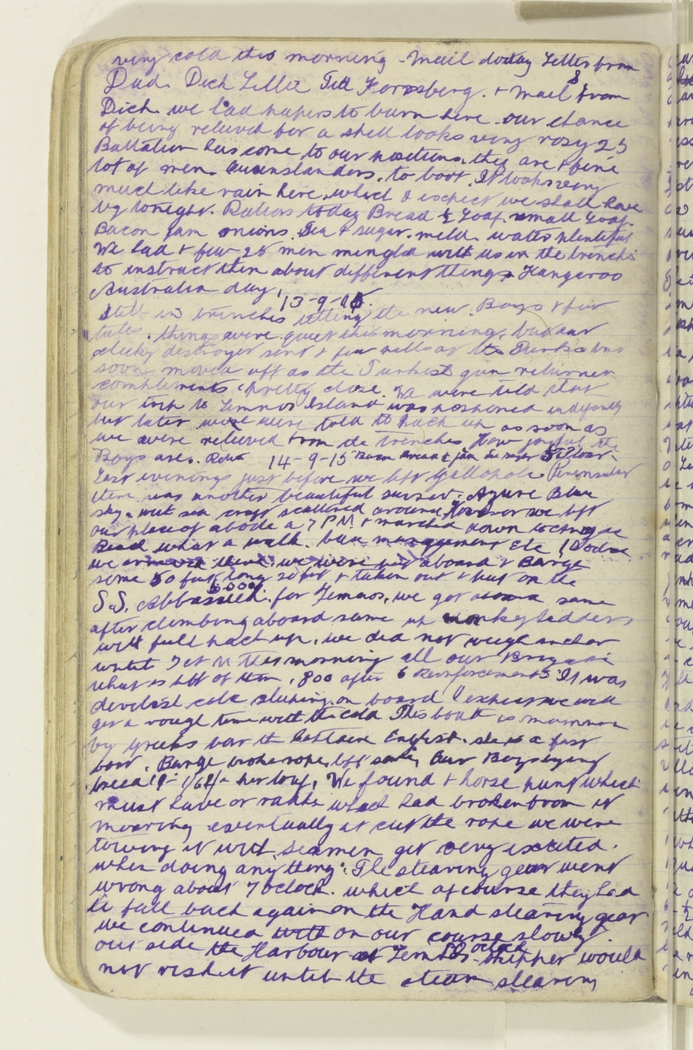 very cold this morning. Mail today Letter from
Dad Dick Lille Till & Mail from
Dick we had papers to burn here. our chance
of being relieved for a spell looks very rosy 25
Battalion has come to our positions. they are & fine
lot of men Queenslanders, to boot. It looks very
much like rain here, which I expect we shall have
by tonight. Rations today Bread ½ Loaf small Loaf
Bacon Jam onions. Tea & sugar. milk water plentiful
We had & few 25 men mingled with us in the trenches
to instruct them about different things Kangaroo
Australia day.
13-9-15.
Still in trenches telling the new Boys & few
tales. things were quiet this morning, bar our
destroyer sent & few at the Turks but
soon moved off as the Turkish gun returned
compliments pretty close. We were told that
our trip to Lemnos Island was postponed indefinitely
but later were told to pack up as soon as
we were relieved from the trenches How joyful the
Boys are. 14-9-15
Last evenings just before we left Gallopoli Peninsular
there was another beautiful sunset. Azure Blue
sky. sea craft scattered around, However we left
our place of abode at 7 PM & marched down to
what a walk. management Etc
we arrived there. we were put aboard & Barge
some 50 feet long 20 feet & taken out & put on the
S.S. Abbassieh. for Lemnos, we got same
after climbing aboard same up monkey ladders
with full pack up. we did not weigh anchor
until 7 this morning all our Brigade
what is left of them, 800 after 6 Reinforcements It was
devilish cold sleeping on board I expect we will
get a rough time with the cold. This boat is manned
by Greeks bar the Captain English. she is a fast
boat. Barge broke rope, left our Boys
bread 1/- 1/6 per loaf. We found & horse punt which
must have or which had broken from it
mooring eventually at cut the rope we were
towing it with, seamen get very excited.
when doing anything. The stearing gear went
wrong about 7 oclock. which of course they had
to fall back again on the Hand stearing gear
we continued on our course slowly.
out side the Harbour at Lemnos skipper would
not risk it until the steam stearing